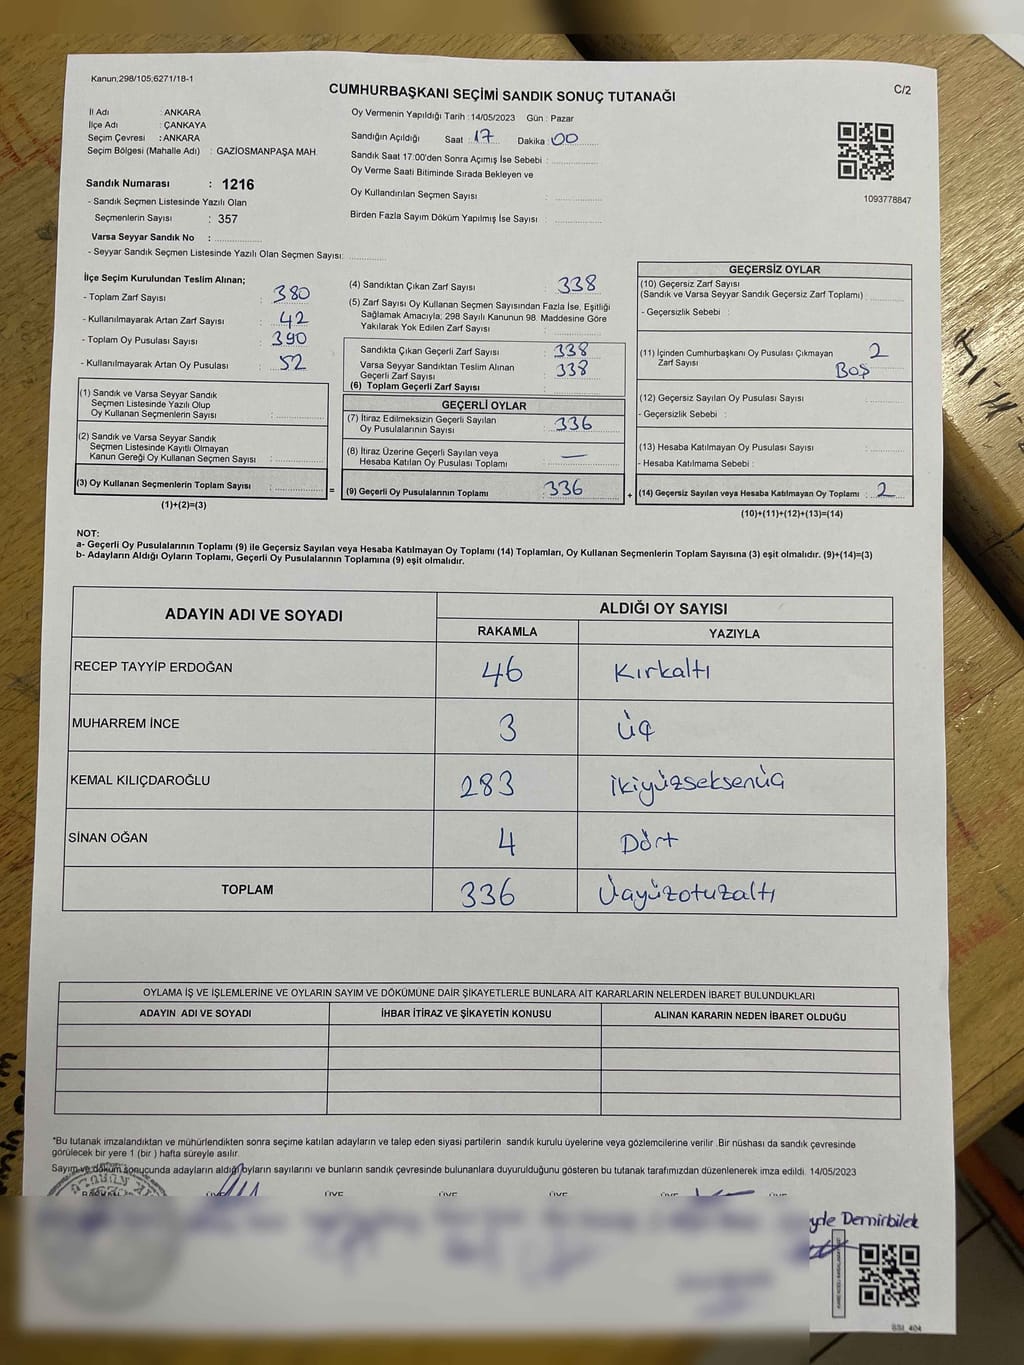 Kanun,298/105,6271/18-1
CUMHURBAŞKANI SEÇİMİ SANDIK SONUÇ TUTANAĞI
C/2
İl Adı : ANKARA
İlçe Adı : ÇANKAYA
Seçim Çevresi : ANKARA
Seçim Bölgesi (Mahalle Adı) : GAZİOSMANPAŞA MAH.
Oy Vermenin Yapıldığı Tarih : 14/05/2023 Gün : Pazar
Sandığın Açıldığı Saat : 17 Dakika : 00
Sandık Saat 17:00'den Sonra Açımış İse Sebebi :
Oy Verme Saati Bitiminde Sırada Bekleyen ve
Oy Kullandırılan Seçmen Sayısı :
Birden Fazla Sayım Döküm Yapılmış İse Sayısı :
1093778847
Sandık Numarası : 1216
- Sandık Seçmen Listesinde Yazılı Olan
Seçmenlerin Sayısı : 357
Varsa Seyyar Sandık No :
- Seyyar Sandık Seçmen Listesinde Yazılı Olan Seçmen Sayısı:
İlçe Seçim Kurulundan Teslim Alınan;
- Toplam Zarf Sayısı : 380
- Kullanılmayarak Artan Zarf Sayısı : 42
- Toplam Oy Pusulası Sayısı : 390
- Kullanılmayarak Artan Oy Pusulası : 52
(1) Sandık ve Varsa Seyyar Sandık
Seçmen Listesinde Yazılı Olup
Oy Kullanan Seçmenlerin Sayısı :
(2) Sandık ve Varsa Seyyar Sandık
Seçmen Listesinde Kayıtlı Olmayan
Kanun Gereği Oy Kullanan Seçmen Sayısı :
(3) Oy Kullanan Seçmenlerin Toplam Sayısı : =
(1)+(2)=(3)
(4) Sandıktan Çıkan Zarf Sayısı : 338
(5) Zarf Sayısı Oy Kullanan Seçmen Sayısından Fazla İse, Eşitliği
Sağlamak Amacıyla; 298 Sayılı Kanunun 98. Maddesine Göre
Yakılarak Yok Edilen Zarf Sayısı :
Sandıkta Çıkan Geçerli Zarf Sayısı : 338
Varsa Seyyar Sandıktan Teslim Alınan
Geçerli Zarf Sayısı : 338
(6) Toplam Geçerli Zarf Sayısı :
GEÇERLİ OYLAR
(7) İtiraz Edilmeksizin Geçerli Sayılan
Oy Pusulalarının Sayısı : 336
(8) İtiraz Üzerine Geçerli Sayılan veya
Hesaba Katılan Oy Pusulası Toplamı : —
(9) Geçerli Oy Pusulalarının Toplamı : 336 +
GEÇERSİZ OYLAR
(10) Geçersiz Zarf Sayısı
(Sandık ve Varsa Seyyar Sandık Geçersiz Zarf Toplamı) :
- Geçersizlik Sebebi :
(11) İçinden Cumhurbaşkanı Oy Pusulası Çıkmayan
Zarf Sayısı : 2
BOŞ
(12) Geçersiz Sayılan Oy Pusulası Sayısı :
- Geçersizlik Sebebi :
(13) Hesaba Katılmayan Oy Pusulası Sayısı :
- Hesaba Katılmama Sebebi :
(14) Geçersiz Sayılan veya Hesaba Katılmayan Oy Toplamı : 2
(10)+(11)+(12)+(13)=(14)
NOT:
a- Geçerli Oy Pusulalarının Toplamı (9) ile Geçersiz Sayılan veya Hesaba Katılmayan Oy Toplamı (14) Toplamları, Oy Kullanan Seçmenlerin Toplam Sayısına (3) eşit olmalıdır. (9)+(14)=(3)
b- Adayların Aldığı Oyların Toplamı, Geçerli Oy Pusulalarının Toplamına (9) eşit olmalıdır.
ADAYIN ADI VE SOYADI
ALDIĞI OY SAYISI
RAKAMLA YAZIYLA
RECEP TAYYİP ERDOĞAN 46 Kırkaltı
MUHARREM İNCE 3 Üç
KEMAL KILIÇDAROĞLU 283 İkiyüzseksenüç
SİNAN OĞAN 4 Dört
TOPLAM 336 Üçyüzotuzaltı
OYLAMA İŞ VE İŞLEMLERİNE VE OYLARIN SAYIM VE DÖKÜMÜNE DAİR ŞİKAYETLERLE BUNLARA AİT KARARLARIN NELERDEN İBARET BULUNDUKLARI
ADAYIN ADI VE SOYADI İHBAR İTİRAZ VE ŞİKAYETİN KONUSU ALINAN KARARIN NEDEN İBARET OLDUĞU
*Bu tutanak imzalandıktan ve mühürlendikten sonra seçime katılan adayların ve talep eden siyasi partilerin sandık kurulu üyelerine veya gözlemcilerine verilir .Bir nüshası da sandık çevresinde
görülecek bir yere 1 (bir ) hafta süreyle asılır.
Sayım ve döküm sonucunda adayların aldığı oyların sayılarını ve bunların sandık çevresinde bulunanlara duyurulduğunu gösteren bu tutanak tarafımızdan düzenlenerek imza edildi. 14/05/2023
ÜYE ÜYE ÜYE ÜYE ÜYE
Demirbilek